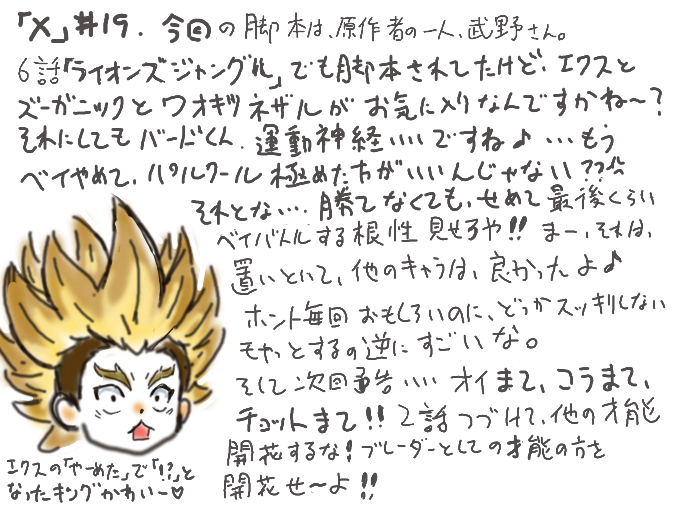 「X」#19. 今回の脚本は、原作者の一人、武野さん。
6話「ライオンズジャングル」でも脚本されてたけど、エクスと
ズーガニックとワオキツネザルがお気に入りなんですかね〜?
それにしてもバードくん、運動神経いいですね♪…もう
ベイやめて、パルクール極めた方がいいんじゃない??
それとな…勝てなくても、せめて最後くらい
ベイバトルする根性見せろや!!まー、それは、
置いといて、他のキャラは、良かったよ♪
ホント毎回おもしろいのに、どっかスッキリしない
モヤっとするの逆にすごいな。
そして次回予告…オイまて、コラまて、
チョットまて!!2話つづけて、他の才能
開花するな!ブレーダーとしての才能の方を
開花せ〜よ!!
エクスの「やーめた」で「!?」と
なったキングかわいー♡